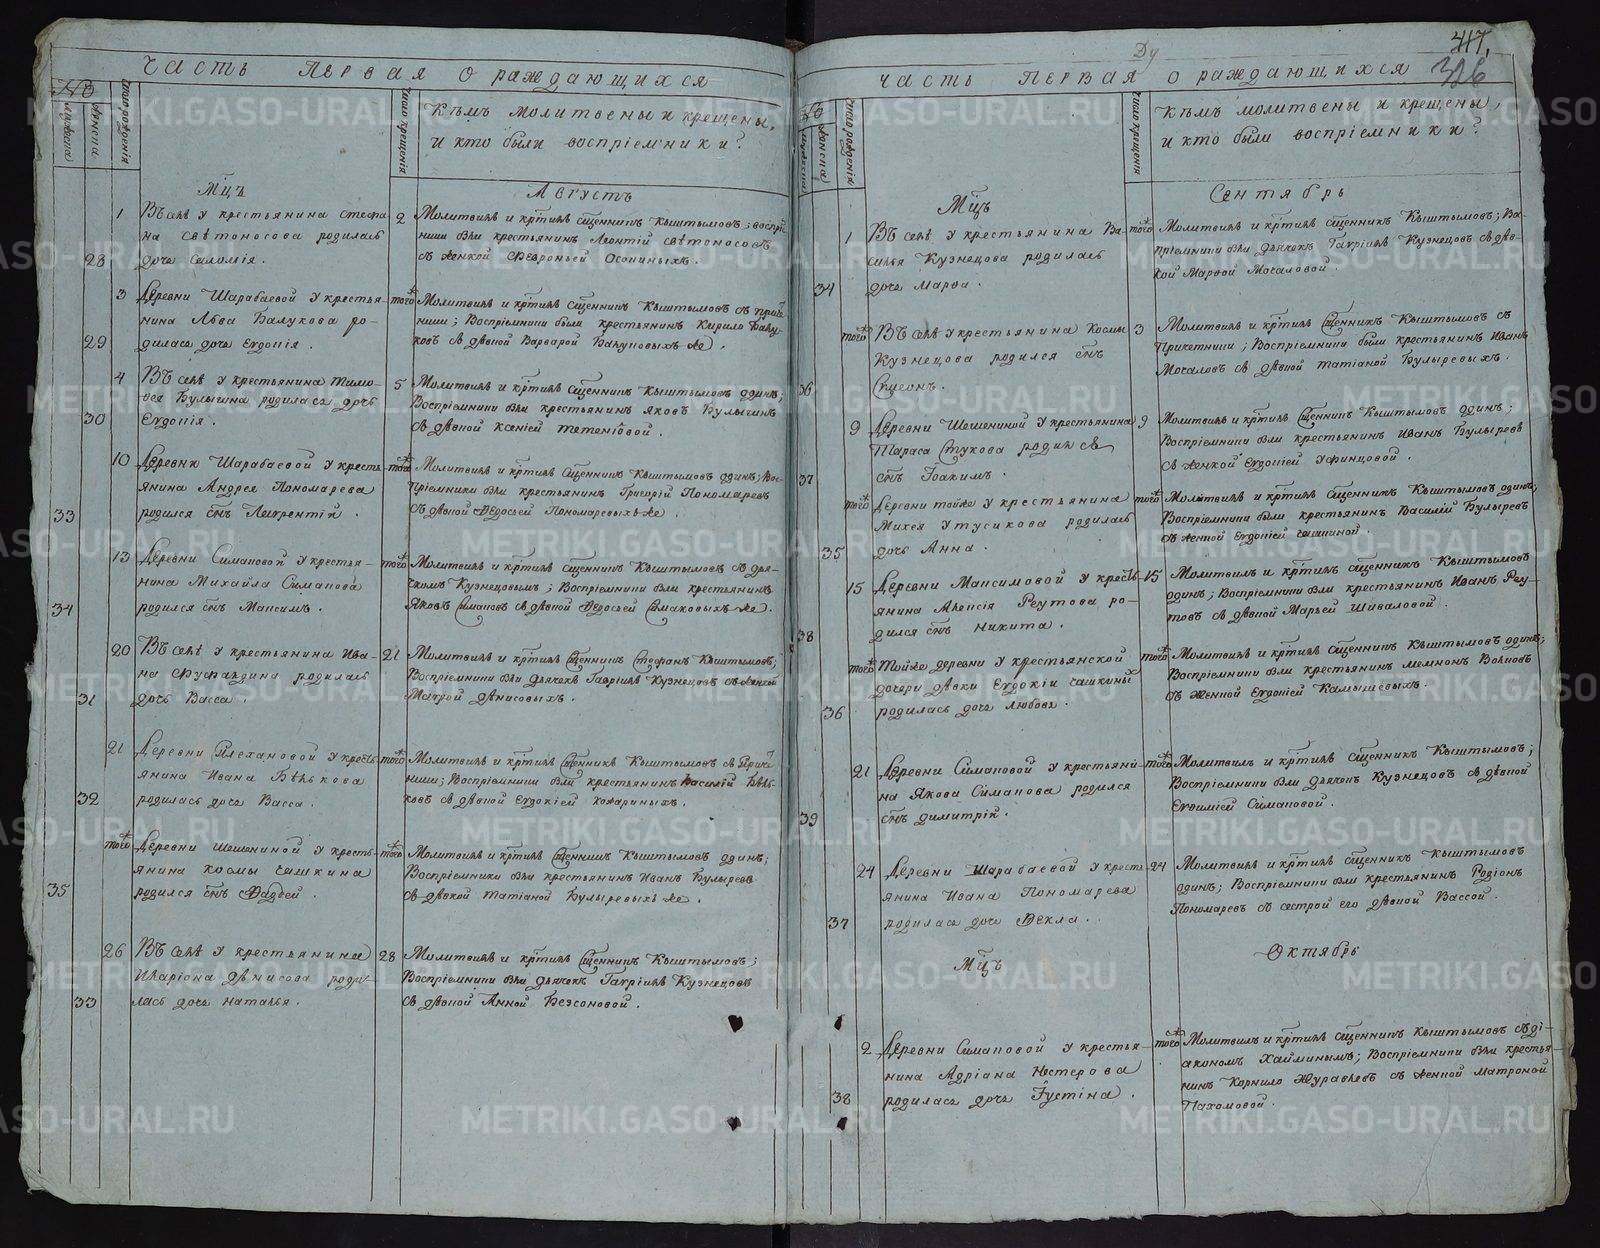 часть первая о раждающихся
№
мужеска
женска
Число рождения
Число крещения
Кѣмъ молитвены и крещены,
и кто были воспріемники?
Мцъ
Августъ
28
1
Въ селѣ у крестьянина Стефа
на Светоносова родилась
дочь Соломія.
2
Молитвилъ и кртилъ Сщенникъ Кыштымовъ; воспрі
ники были крестьянинъ Леонтій Светоносовъ
съ женкой Февроньей
29
3
Деревни Шарабаевой у крестья-
нина Льва Балукова ро-
дилась дочь Евдокія.
того*
Молитвилъ и кртилъ Сщенникъ Кыштымовъ съ
Воспріемники были крестьянинъ Кирило
съ дѣвкой Варварой
30
4
Въ селѣ у крестьянина Тимо-
ѳея Булычина родилась дочь
Евдокія.
5
Молитвилъ и кртилъ Сщенникъ Кыштымовъ одинъ;
Воспріемники были крестьянинъ Яковъ Булычинъ
съ дѣвкой Ксеніей
33
10
Деревни Шарабаевой у кресть-
янина Андрея Пономарева
родился снъ Лаврентій.
того*
Молитвилъ и кртилъ Сщенникъ Кыштымовъ одинъ; Вос-
пріемники были крестьянинъ Григорій Пономаревъ
съ дѣвкой Ѳедосьей Пономаревыхъ-же.
34
13
Деревни Симановой у крестья-
нина Михайла Симанова
родился снъ Максимъ.
того*
Молитвилъ и кртилъ Сщенникъ Кыштымовъ съ дья-
чкомъ Кузнецовымъ; Воспріемники были крестьянинъ
Яковъ Симановъ съ дѣвкой Ѳедосьей Симановыхъ-же.
31
20
Въ селѣ у крестьянина Ива-
на родилась
дочь Васса.
21
Молитвилъ и кртилъ Сщенникъ Стефанъ Кыштымовъ;
Воспріемники были дьячекъ Гавріилъ Кузнецовъ съ женкой
Матрой Денисовыхъ.
32
21
Деревни Плехановой у кресть-
янина Ивана Бѣлькова
родилась дочь Васса.
того*
Молитвилъ и кртилъ Сщенникъ Кыштымовъ съ
Воспріемники были крестьянинъ Василій Бѣль-
ковъ съ дѣвкой Евдокіей
35
того*
Деревни Шешениной у кресть-
янина Космы Сашкина
родился снъ Фаддей.
того*
Молитвилъ и кртилъ Сщенникъ Кыштымовъ одинъ;
Воспріемники были крестьянинъ Иванъ Булыревъ
съ дѣвкой Татіаной Булыревыхъ же.
33
26
Въ селѣ у крестьянина
Иларіона Денисова роди-
лась дочь Наталья.
28
Молитвилъ и кртилъ Сщенникъ Кыштымовъ;
Воспріемники были дьячекъ Гавріилъ Кузнецовъ
съ дѣвкой Анной Безсоновой.
417.
часть первая о раждающихся
№
мужеска
женска
Число рождения
Число крещения
Кѣмъ молитвены и крещены,
и кто были воспріемники?
Мцъ
Сентябрь
34
1
Въ селѣ у крестьянина Ва-
силья Кузнецова родилась
дочь Марѳа.
того*
Молитвилъ и кртилъ Сщенникъ Кыштымовъ; Во-
пріемники были дьячекъ Гавріилъ Кузнецовъ съ дѣв-
кой Марѳой Мосаловой.
36
того*
Въ селѣ у крестьянина Космы
Кузнецова родился снъ
Симеонъ.
3
Молитвилъ и кртилъ Сщенникъ Кыштымовъ съ
Причетники; Воспріемники были крестьянинъ Иванъ
Мочаловъ съ дѣвкой Татіаной Булыревыхъ.
37
9
Деревни Шешениной у крестьянина
Тараса Стукова родился
снъ Іоакимъ.
9
Молитвилъ и кртилъ Сщенникъ Кыштымовъ одинъ;
Воспріемники были крестьянинъ Иванъ Булыревъ
съ женкой Евдокіей Уфинцовой.
35
того*
Деревни тойже у крестьянина
Михея Утусикова родилась
дочь Анна.
того*
Молитвилъ и кртилъ Сщенникъ Кыштымовъ одинъ;
Воспріемники были крестьянинъ Василій Булыревъ
съ женкой Евдокіей Сашкиной.
38
15
Деревни Максимовой у кресть-
янина Алексія Реутова ро-
дился снъ Никита.
15
Молитвилъ и кртилъ Сщенникъ Кыштымовъ
одинъ; Воспріемники были крестьянинъ Иванъ Реу-
товъ съ дѣвкой Марьей Шиваловой.
36
того*
Тойже деревни у крестьянской
дочери дѣвки Евдокіи Сашкиныхъ
родилась дочь Любовь.
того*
Молитвилъ и кртилъ Сщенникъ Кыштымовъ одинъ;
Воспріемники были крестьянинъ Мемнонъ Волковъ
съ женкой Евдокіей Камышевыхъ.
39
21
Деревни Симановой у крестьяни-
на Якова Симанова родился
снъ Димитрій.
того*
Молитвилъ и кртилъ Сщенникъ Кыштымовъ;
Воспріемники были дьячекъ Кузнецовъ съ дѣвкой
Евѳиміей Симановой.
37
24
Деревни Шарабаевой у кресть-
янина Ивана Пономарева
родилась дочь Ѳекла.
24
Молитвилъ и кртилъ Сщенникъ Кыштымовъ
одинъ; Воспріемники были крестьянинъ Родіонъ
Пономаревъ съ сестрой его дѣвкой Вассой.
Мцъ
Октябрь
38
2
Деревни Симановой у крестья-
нина Адріана Нестерова
родилась дочь Іустіна.
того*
Молитвилъ и кртилъ Сщенникъ Кыштымовъ съ ді-
акономъ Хайминымъ; Воспріемники были крестья-
нинъ Корнило Журавлевъ съ женкой Матроной
Пахомовой.
METRIKI.GASO-URAL.RU